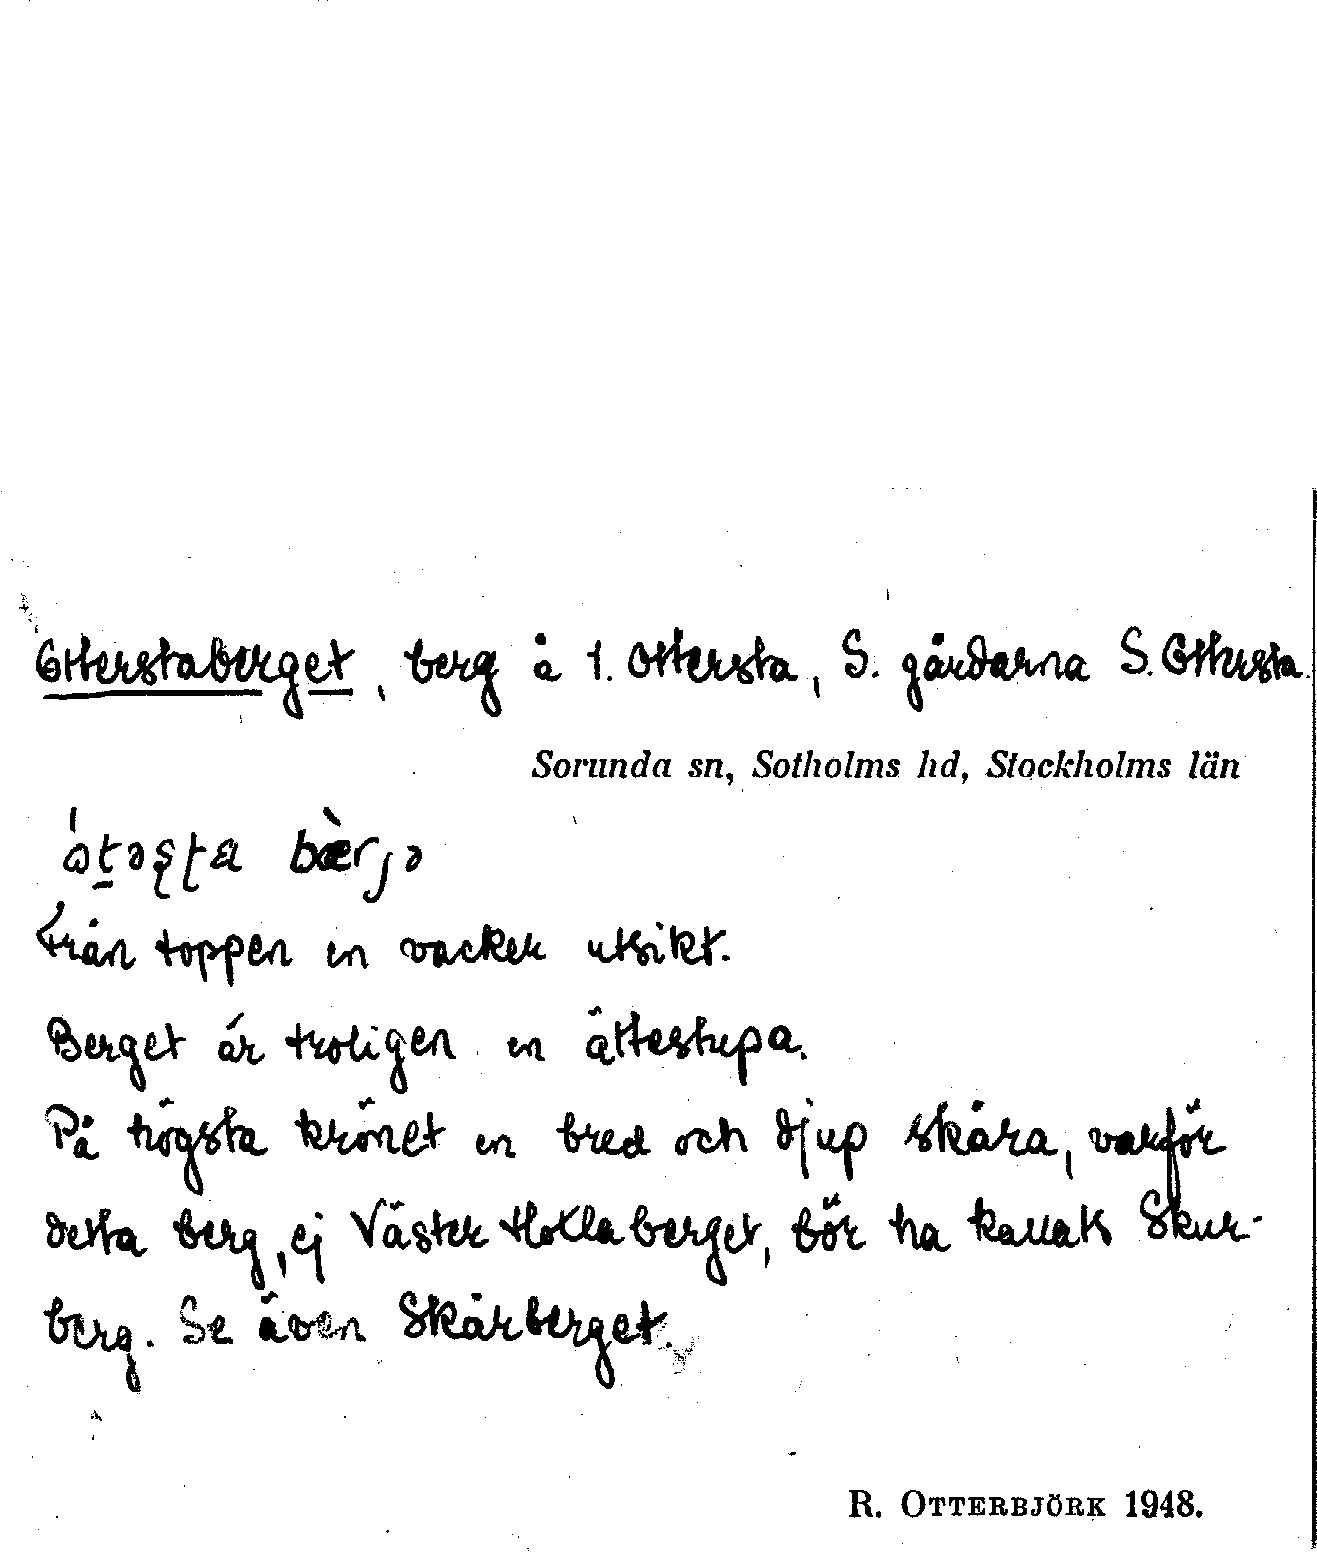 Otterstaberget, berg å t. Ottersta, S. gårdarna S. Ottersta.
Sorunda sn, Sotholms hd, Stockholms län
Från toppen en vacker utsikt.
Berget är troligen en ättestupa.
På högsta krönet en bred och djup skåra, varför
detta berg, ej Väster Hoxlaberget, bör ha kallats Skur-
berg. Se även Skårberget.
R. OTTERBJÖRK 1948.